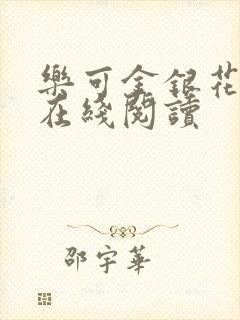 樂可金銀花
在綫閱讀
邵宇華